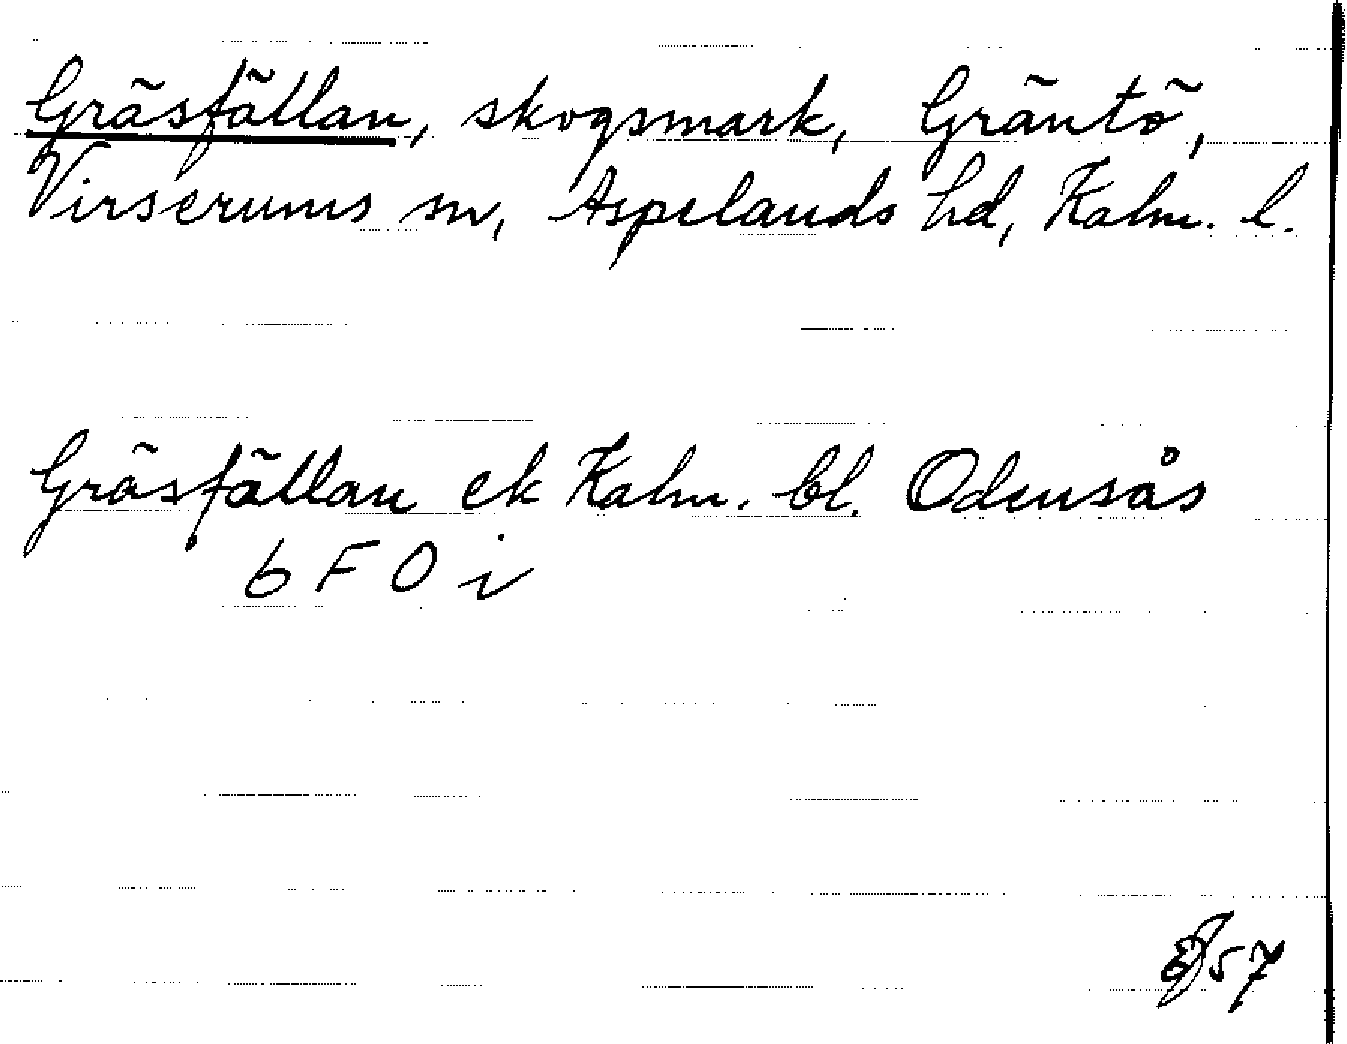 Gräsfällan, skogsmark, Gräntö,
Virserums sn, Aspelands hd, Kalm. l.
Gräsfällan ek Kalm. bl. Odensås
6 F 0 i
57